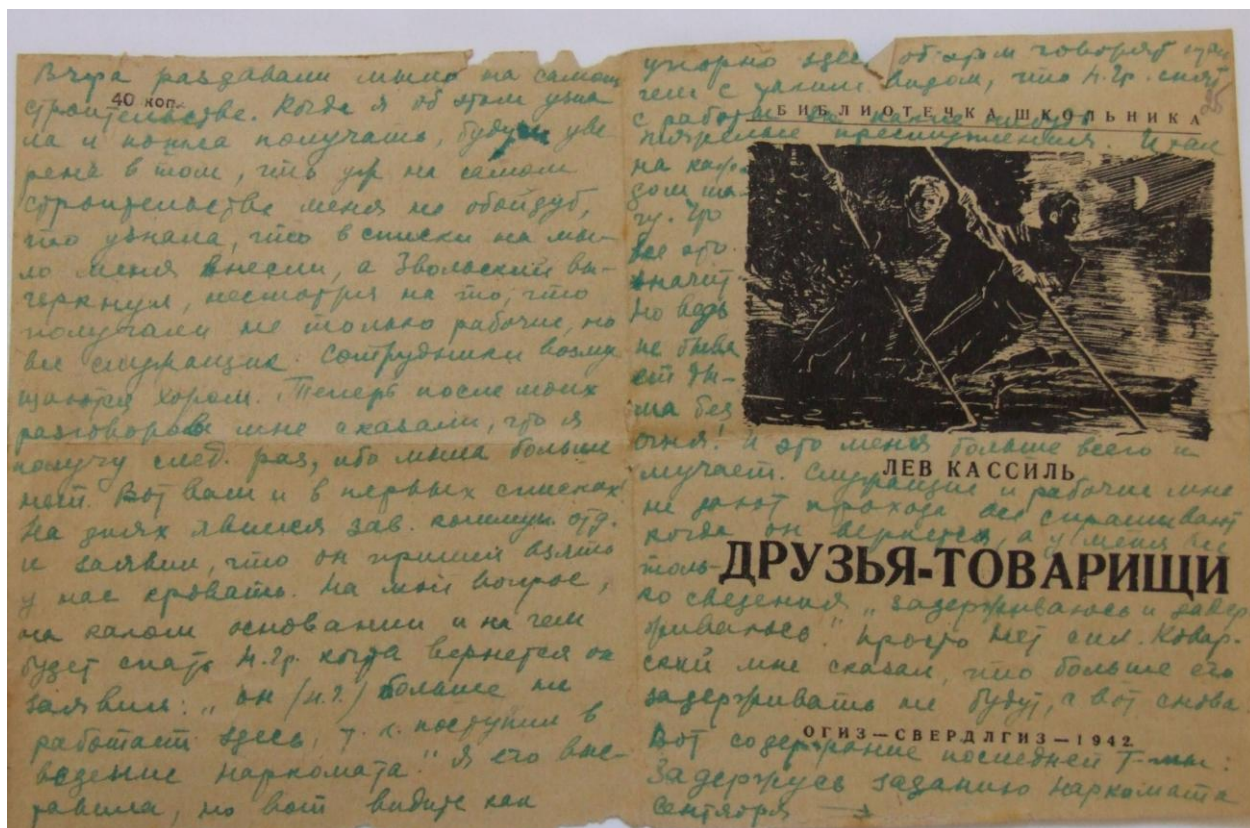 Вчера раздавали мыло на самом
40 коп.
строительстве. Когда я об этом узна
ла и пошла получать, будучи уве
рена в том, что уж на самом
строительстве меня не обойдут,
то узнала, что в списки на мы-
ло меня внесли, а Звольский вы-
черкнул, несмотря на то, что
получали не только рабочие, но
все служащие. Сотрудники возму
щаются хором. Теперь после моих
разговоров мне сказали, что я
получу след. раз, ибо мыла больше
нет. Вот вам и в первых списках!
На днях явился зав. коммун. отд.
и заявил, что он пришел взять
у нас кровать. На мой вопрос,
на каком основании и на чем
будет спать Н.Гр. когда вернется он
заявил: „он (н.г.) больше не
работает здесь, т.к. поступил в
ведение наркомата." Я его выс-
но вот видите как
упорно здесь об этом говорят
чем с таким видом, что Н.Гр. снят
25
с работы за какие
БИБЛИОТЕЧКА ШКОЛЬНИКА
преступления. И так
на каж-
дом ша-
гу. Что
все это
значит
но ведь
не быва
ет ды-
ма без
огня! И это меня больше всего и
ЛЕВ КАССИЛЬ
мучает. Служащие и рабочие мне
не дают прохода все спрашивают
когда он вернется, а у меня все
толь-
ДРУЗЬЯ-ТОВАРИЩИ
ко сведения „задерживаюсь и задер
живаюсь" просто нет сил. Ковар-
ский мне сказал, что больше его
задерживать не будут, а вот снова
ОГИЗ—СВЕРДЛГИЗ—1942
Вот содержание последней Т-мы:
Задержусь заданию наркомата
сентября →